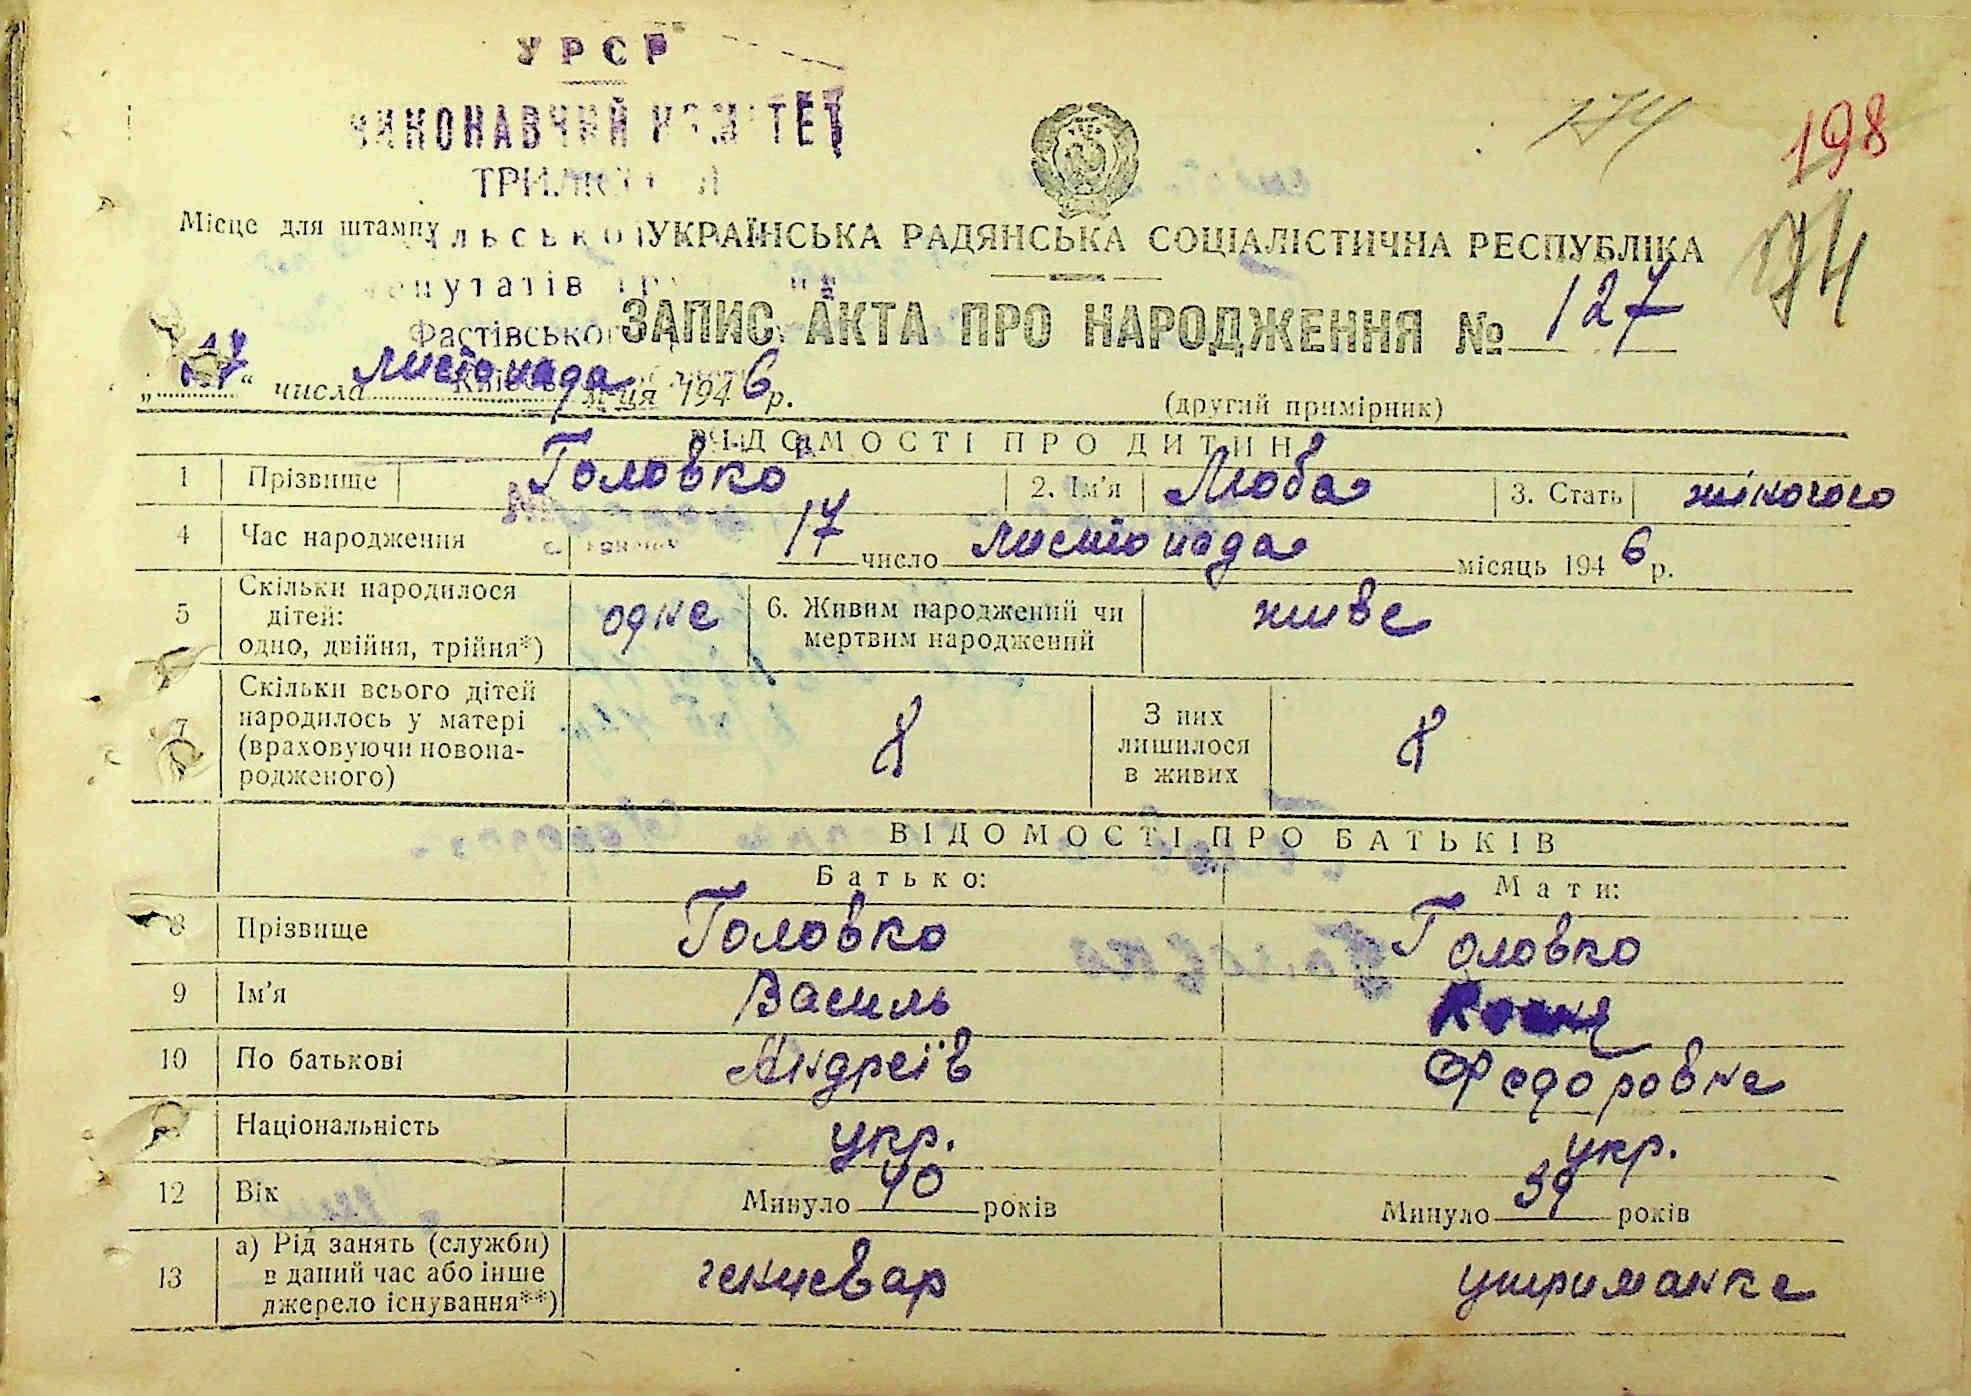 УРСР
ВИКОНАВЧИЙ КОМІТЕТ
174
198
174
Місце для штампу
УКРАЇНСЬКА РАДЯНСЬКА СОЦІАЛІСТИЧНА РЕСПУБЛІКА
депутатів
Фастівського
ЗАПИС АКТА ПРО НАРОДЖЕННЯ № 127
„ “ числа листопада м-ця 1946 р.
(другий примірник)
ВІДОМОСТІ ПРО ДИТИНУ
1 Прізвище Головко 2. Ім'я Люба 3. Стать жіногого
4 Час народження 17 число листопада місяць 1946 р.
5 Скільки народилося дітей: одно, двійня, трійня*) одне 6. Живим народжений чи мертвим народжений живе
7 Скільки всього дітей народилось у матері (враховуючи новонародженого) 8 З них лишилося в живих 8
ВІДОМОСТІ ПРО БАТЬКІВ
Батько: Мати:
8 Прізвище Головко Головко
9 Ім'я Василь
10 По батькові Андреїв Федоровна
Національність укр. укр.
12 Вік Минуло 40 років Минуло 39 років
13 а) Рід занять (служби) в даний час або інше джерело існування**) утриманка